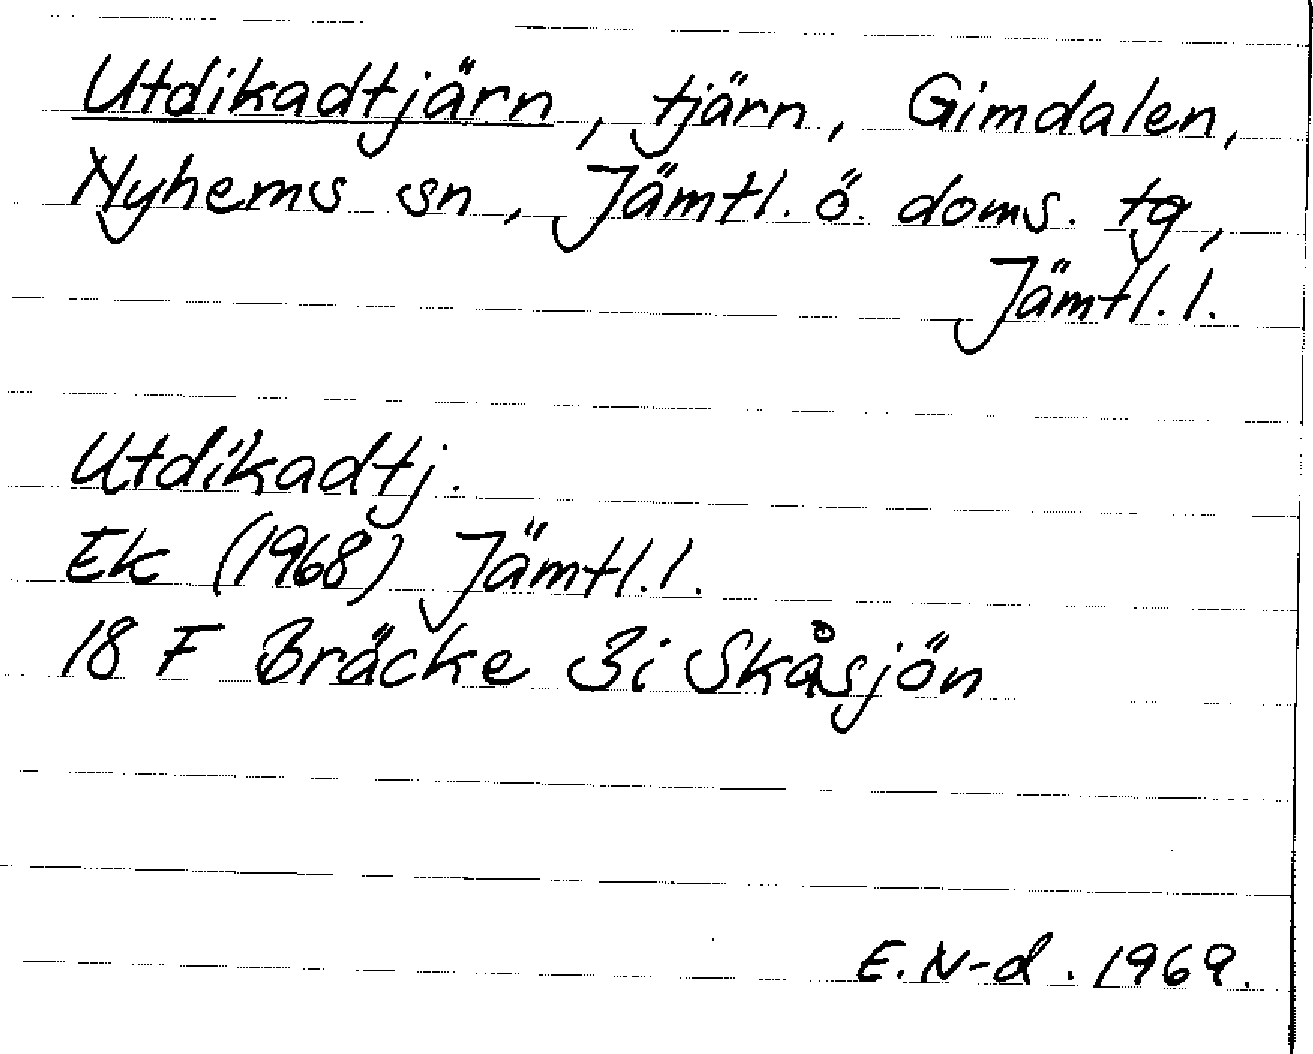 Utdikadtjärn, tjärn, Gimdalen,
Nyhems sn, Jämtl. ö. doms. tg,
Jämtl. l.
Utdikadtj.
Ek (1968) Jämtl. l.
18 F Bräcke 3i Skåsjön
E. N-d. 1969.